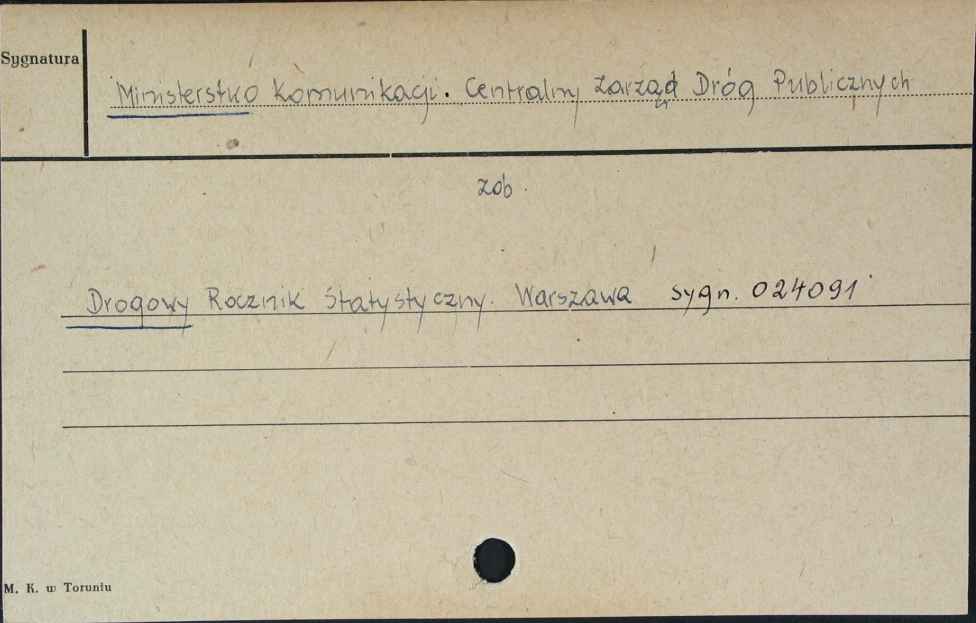 Sygnatura
Ministerstwo Komunikacji. Centralny Zarząd Dróg Publicznych
zob.
Drogowy Rocznik Statystyczny. Warszawa sygn. 024091
M. K. w Toruniu